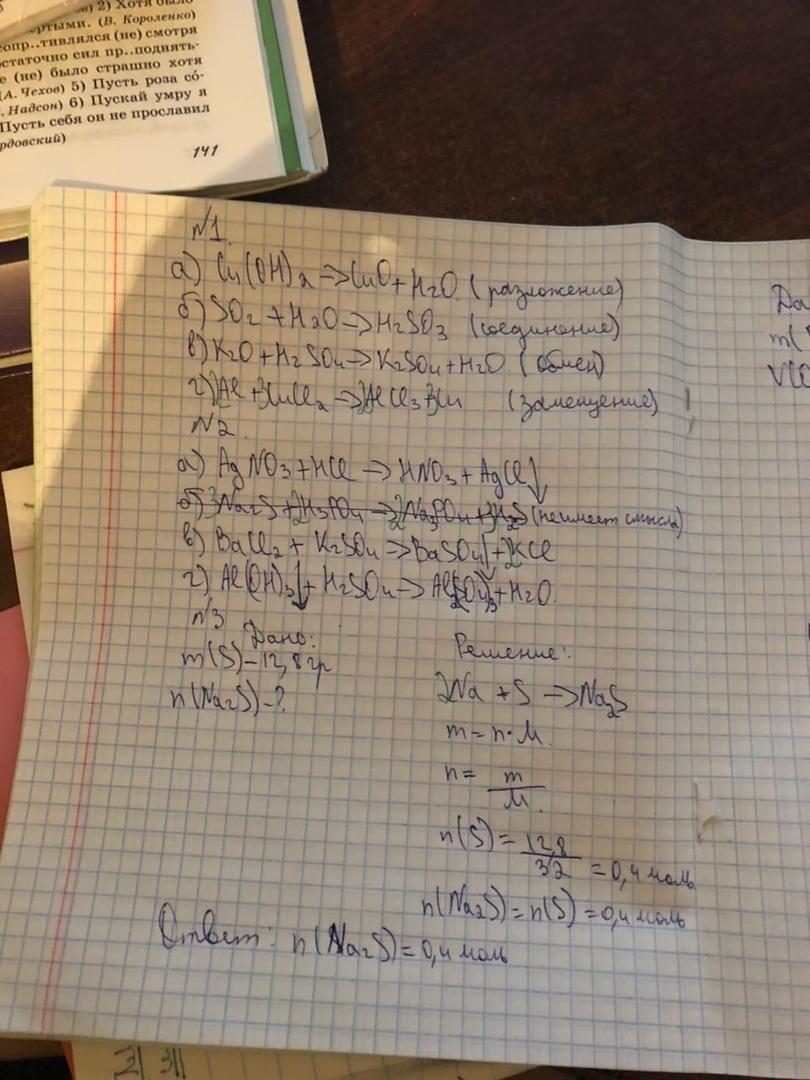 2) Хотя было
ертыми. (В. Короленко)
сопр..тивлялся (не) смотря
остаточно сил пр..поднять-
е (не) было страшно хотя
(А. Чехов) 5) Пусть роза со́-
. Надсон) 6) Пускай умру я
Пусть себя он не прославил
рдовский)
141
№1.
а) Cu(OH)2 → CuO + H2O. (разложение)
б) SO2 + H2O → H2SO3 (соединение)
в) K2O + H2SO4 → K2SO4 + H2O (обмен)
г) 2Al + 3CuCl2 → 2AlCl3 3Cu (замещение)
№2.
а) AgNO3 + HCl → HNO3 + AgCl↓
б) 3Na2S + 2H3PO4 → 2Na3PO4 + 3H2S (неимеет смысла)
в) BaCl2 + K2SO4 → BaSO4↓ + 2KCl
г) Al(OH)3↓ + H2SO4 → Al2(SO4)3 + H2O.
№3
Дано:
m(S) – 12,8 гр
n(Na2S) – ?
Решение:
2Na + S → Na2S
m = n · M.
n = m / M.
n(S) = 12,8 / 32 = 0,4 моль
n(Na2S) = n(S) = 0,4 моль
Ответ: n(Na2S) = 0,4 моль
Да
m(
V(C